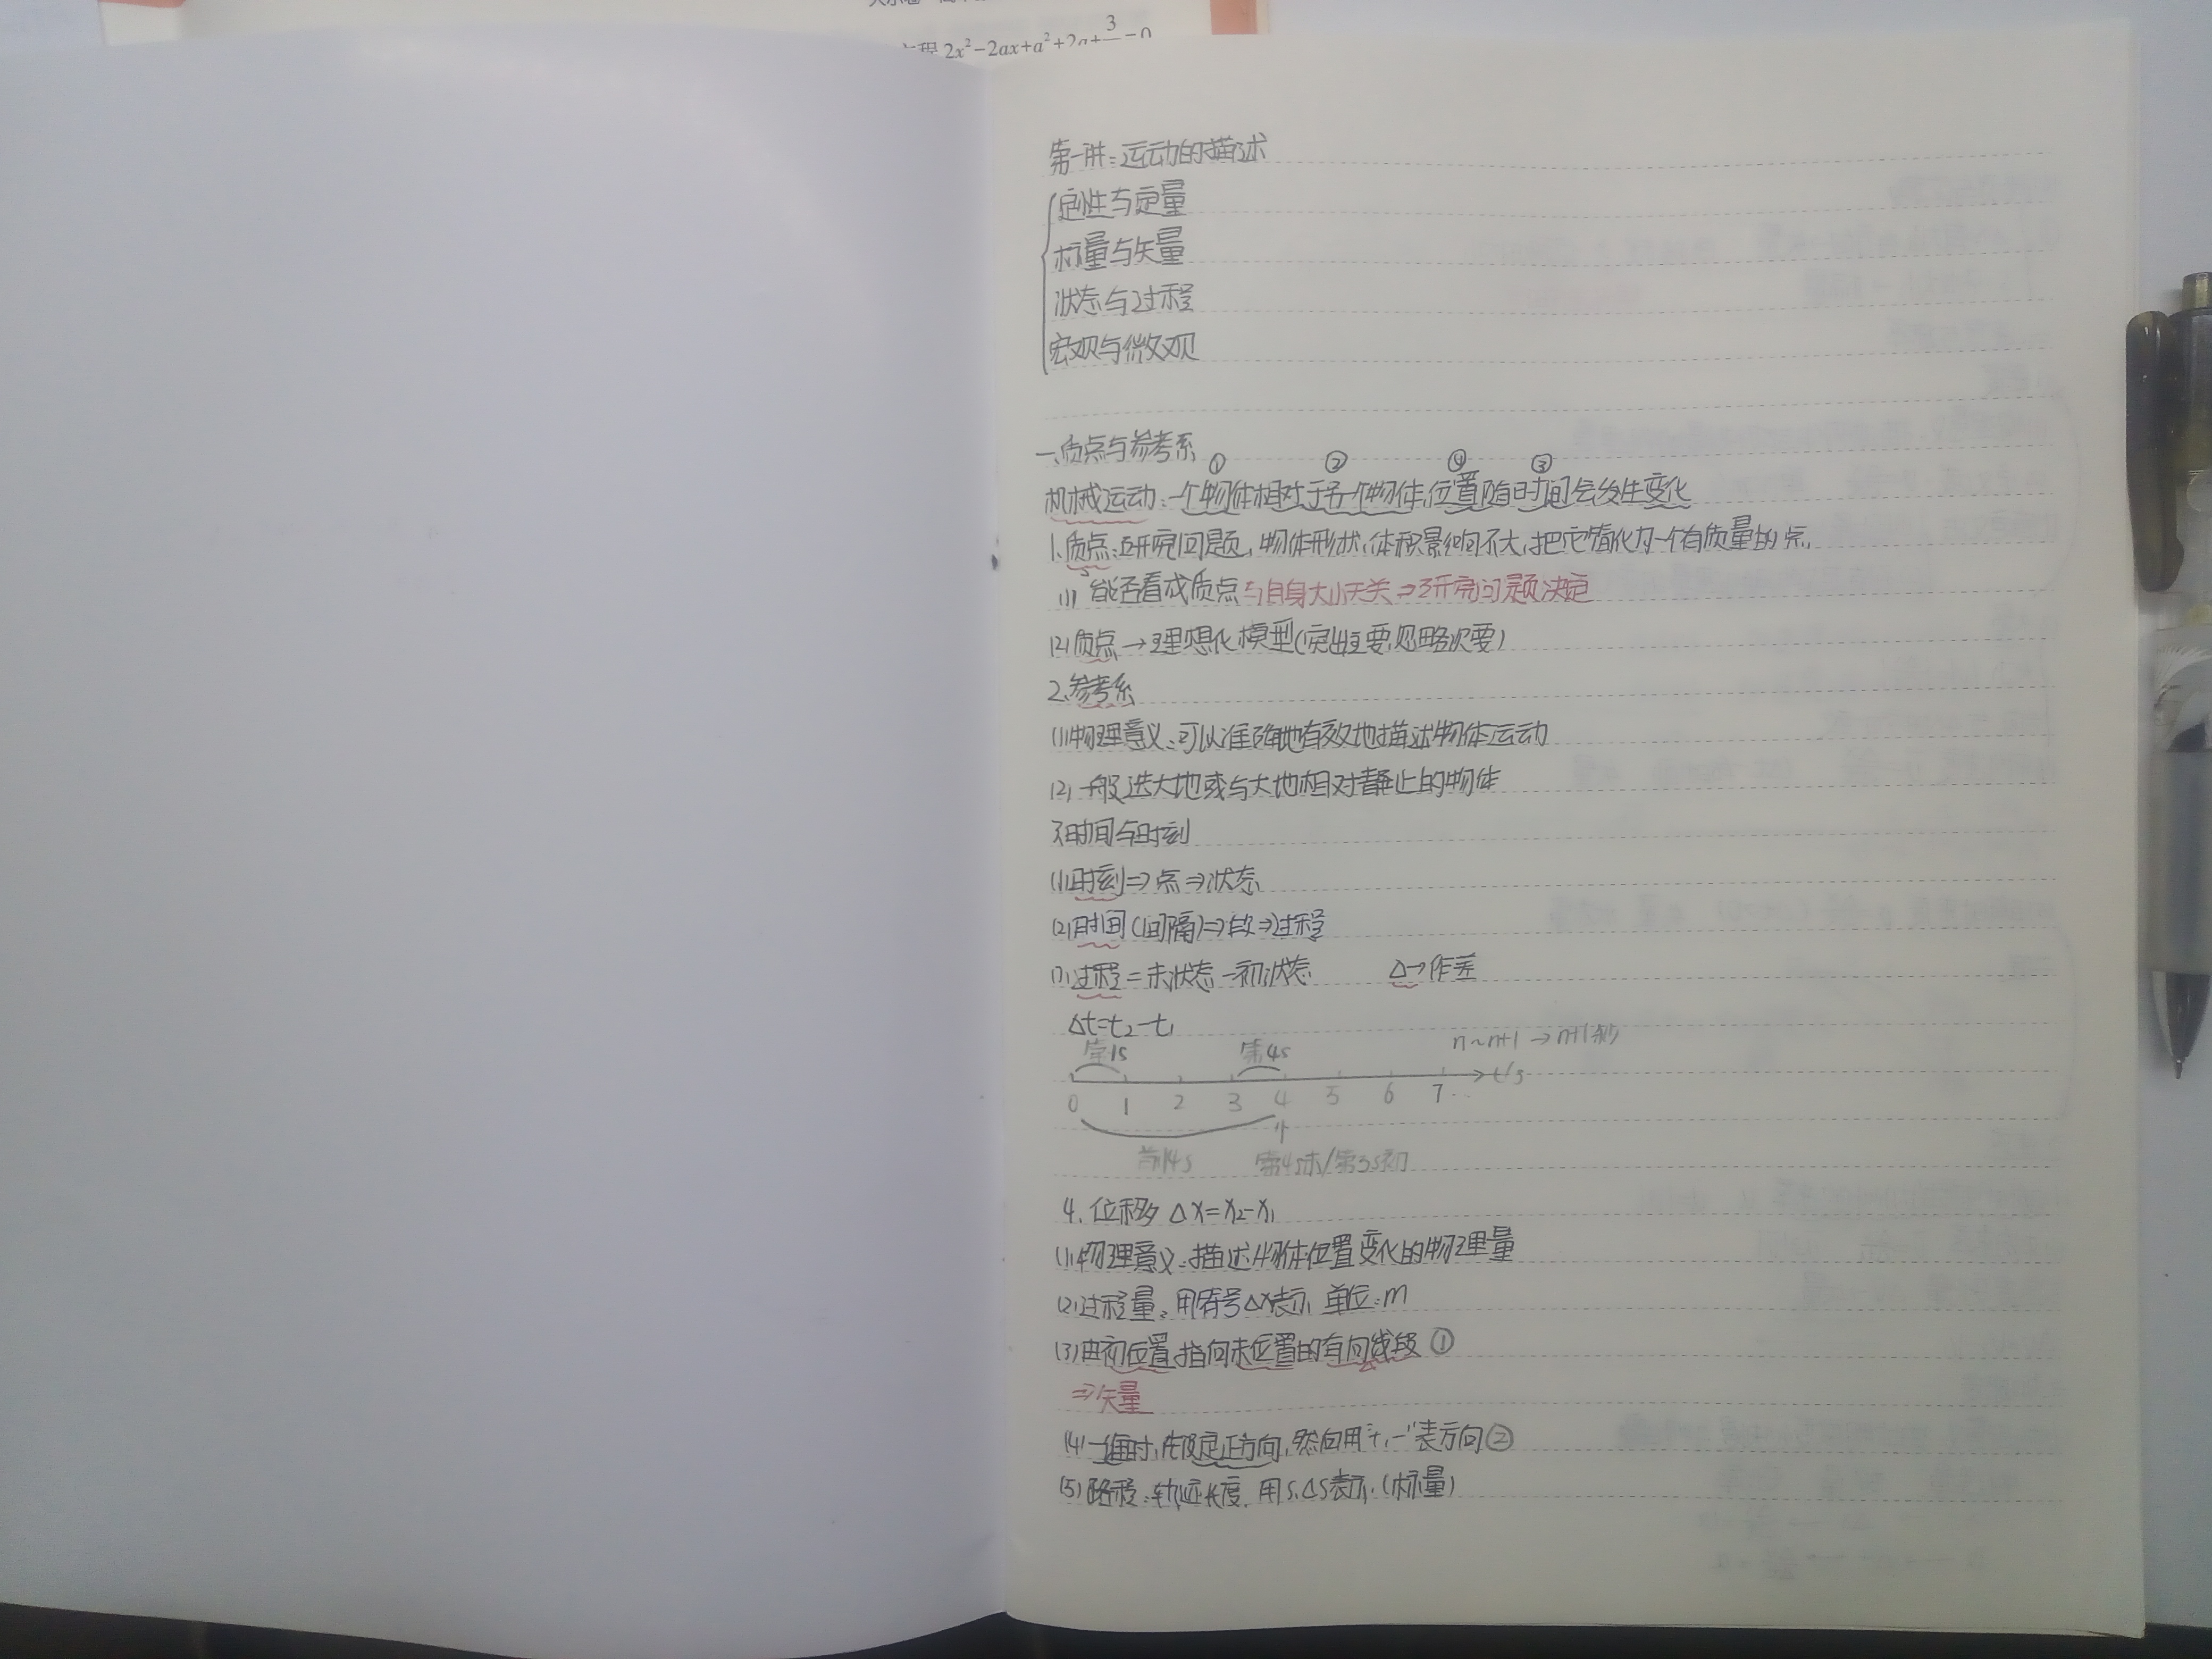 程 2x²-2ax+a²+2a+3
第一讲:运动的描述
定性与定量
标量与矢量
状态与过程
宏观与微观
一.质点与参考系
① ② ④ ③
机械运动:一个物体相对于另一个物体,位置随时间会发生变化
1.质点:研究问题,物体形状,体积影响不大,把它简化为一个有质量的点.
(1) 能否看成质点与自身大小无关⇒研究问题决定
(2)质点→理想化模型(突出主要,忽略次要)
2.参考系
(1)物理意义:可以准确地有效地描述物体运动
(2)一般选大地或与大地相对静止的物体
3.时间与时刻
(1)时刻⇒点⇒状态
(2)时间(间隔)⇒段⇒过程
过程=末状态-初状态 Δ→作差
Δt=t₂-t₁
第1s 第4s n~n+1→n+1秒
t/s
0 1 2 3 4 5 6 7 ..
前4s 第4s末/第5s初
4. 位移 Δx=x₂-x₁
(1)物理意义:描述物体位置变化的物理量
(2)过程量:用符号Δx表示,单位:m
(3)由初位置指向末位置的有向线段 ①
⇒矢量
(4)一维时,先规定正方向,然后用"+,-"表方向②
(5)路程:轨迹长度.用s.Δs表示.(标量)